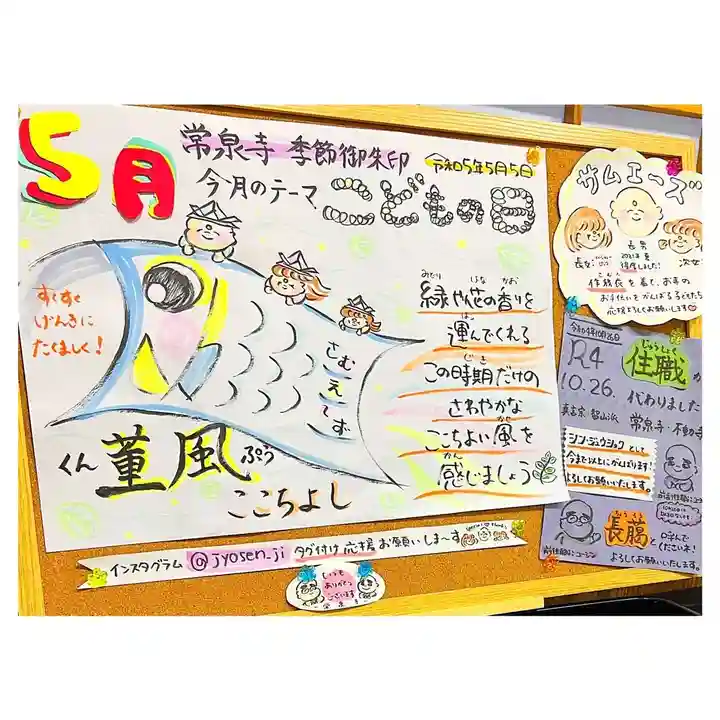 5月
常泉寺 季節御朱印
令和5年5月5日
今月のテーマ
こどもの日
すくすく
げんきに
たくましく!
さむえーず
緑や花の香りを
運んでくれる
この時期だけの
さわやかな
ここちよい風を
感じましょう
くん 薫風 ぷう
ここちよし
インスタグラム @jyosen_ji タグ付け 応援 お願いしま〜す
いつも
ありがとう
ございます
サムエーズ
長男
長女
次女
得度しました!
作務衣を着て、お寺の
お手伝いをがんばる子どもたち
応援よろしくお願いします
令和4年10月26日
R4
10.26.
じゅうしょく
住職が
代わりました
真言宗・智山派 常泉寺・不動寺
シン・ジュウショクとして
今まで以上にがんばります!
よろしくお願いいたします。
長臈と
お呼んで
ください!
よろしくお願いいたします。